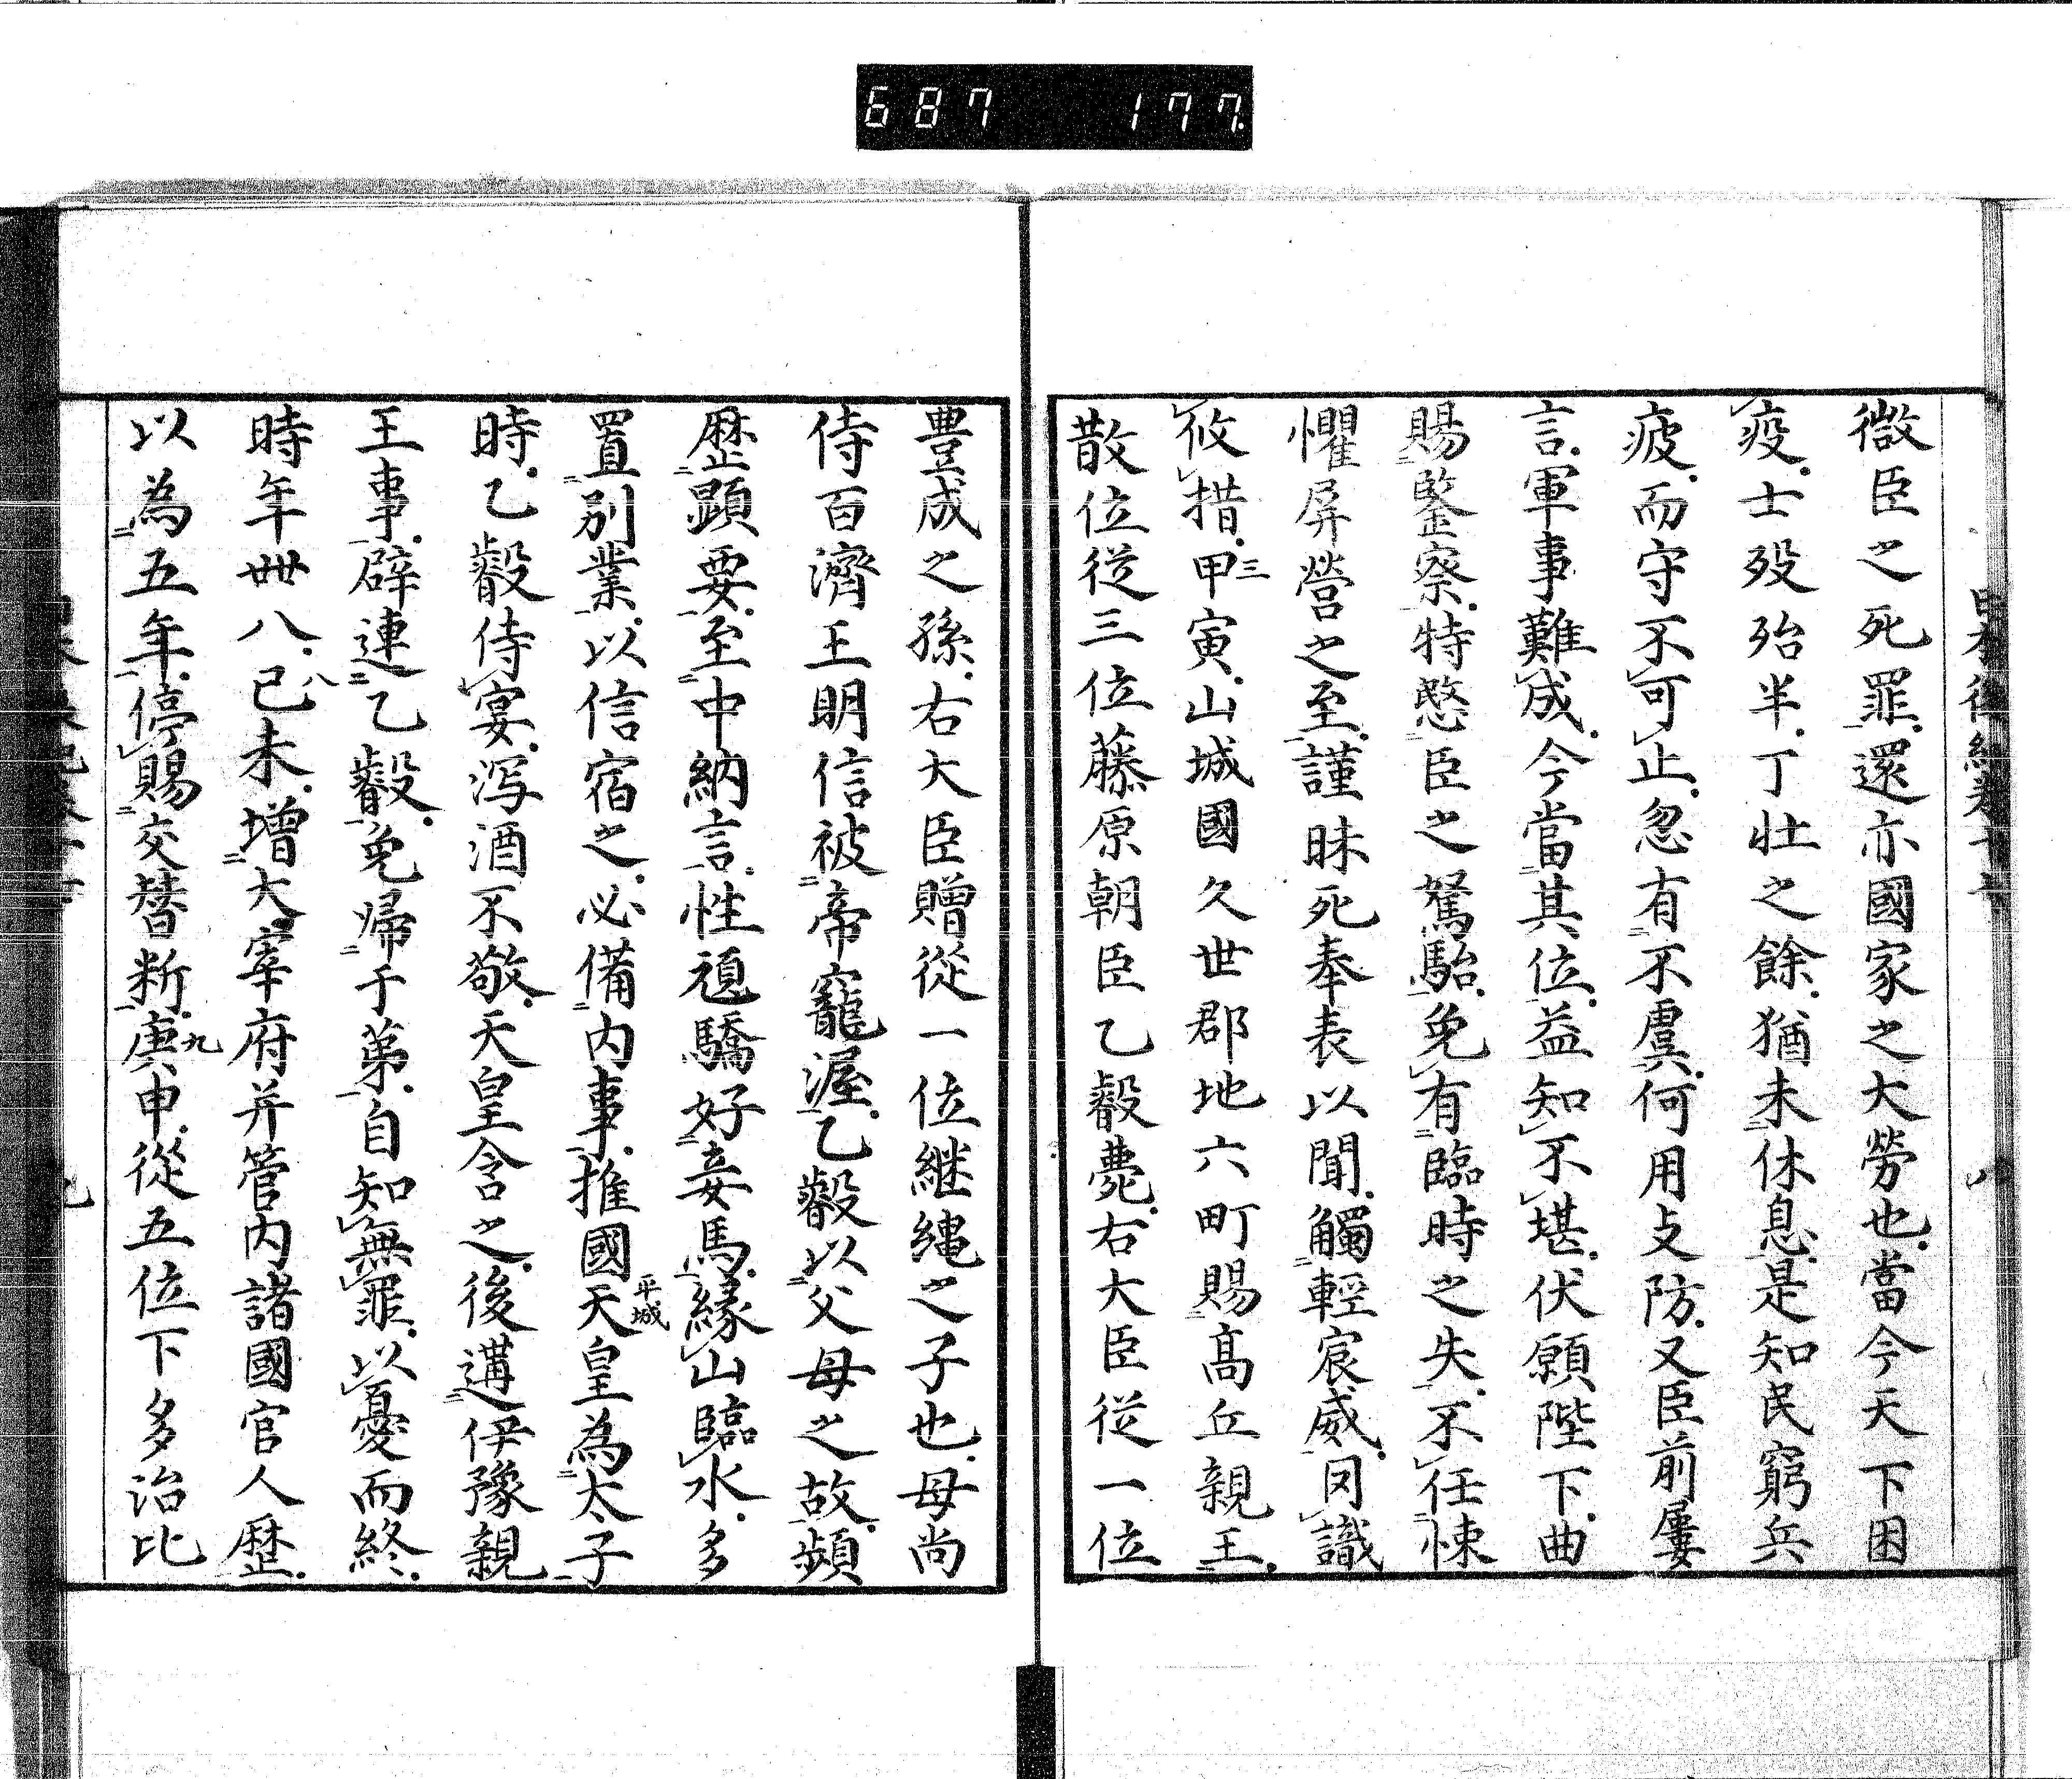 687 177
微臣之死罪還亦國家之大勞也當今天下困
疫士歿殆半丁壮之餘猶未休息是知民窮兵
疲而守不可止忽有不虞何用支防又臣前屢
言軍事難成今當其位益知不堪伏願陛下曲
賜鑒察特愍臣之駑駘免有臨時之失不任悚
懼屏營之至謹昧死奉表以聞觸輕宸威罔識
攸措甲三寅山城國久世郡地六町賜髙丘親王
散位従三位藤原朝臣乙叡薨右大臣従一位
豊成之孫右大臣贈從一位継縄之子也母尚
侍百濟王明信被帝寵渥乙叡以父母之故頻
歴顕要至中納言性頑驕好妾馬縁山臨水多
置別業以信宿之必備内事推國天平城皇為太子
時乙叡侍宴泻酒不敬天皇含之後遘伊豫親
王事辟連乙叡免帰于第自知無罪以憂而終
時年卌八己八未増大宰府并管内諸國官人歴
以為五年停賜交替断庚九申從五位下多治比